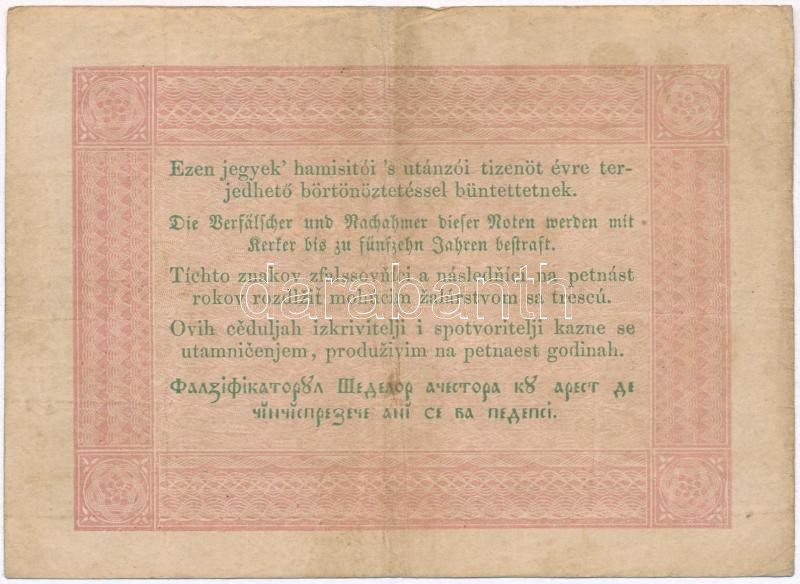 Ezen jegyek' hamisitói 's utánzói tizenöt évre ter-
jedhető börtönöztetéssel büntettetnek.
Die Verfälscher und Nachahmer dieser Noten werden mit
Kerker bis zu fünfzehn Jahren bestraft.
Tíchto znakov zfalssovňíci a následňíci na petnást
rokov rozdlžiť mohúcim žalárstvom sa trescú.
darabanth
Ovih cěduljah izkrivitelji i spotvoritelji kazne se
utamničenjem, produživim na petnaest godinah.
Фалзіфікаторȣл Шеделор ачестора кȣ арест де
чінчіспрезече ані се ва педепсі.